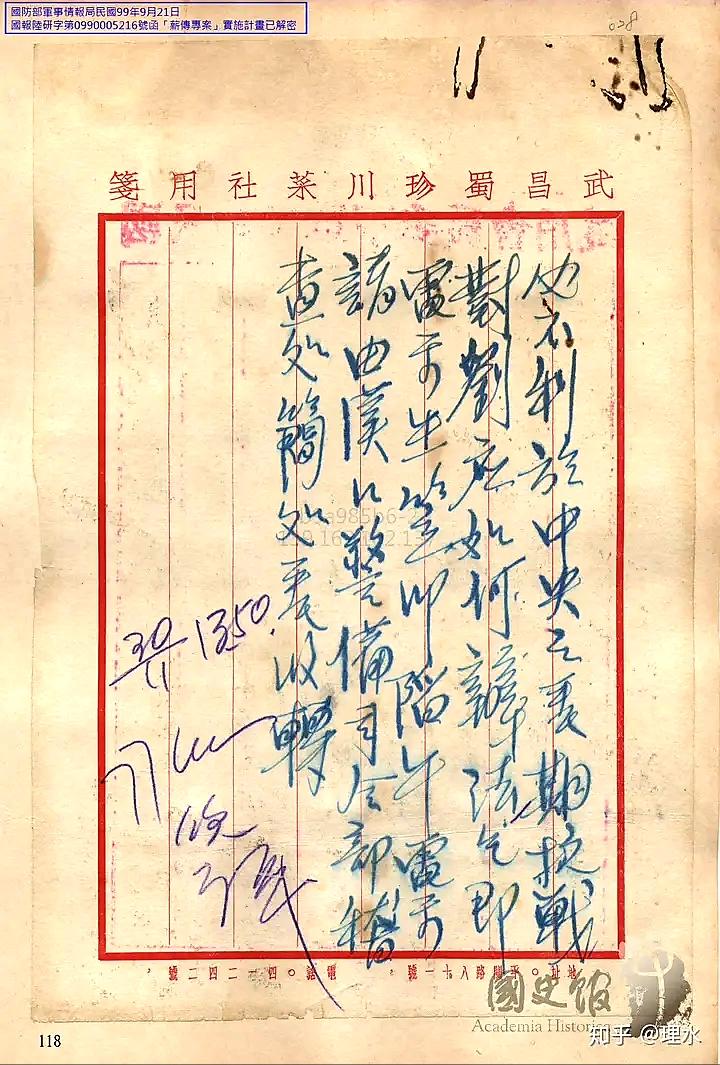 國防部軍事情報局民國99年9月21日
國報陸研字第0990005216號函「薪傳專案」實施計畫已解密
028
武昌蜀珍川菜社用箋
不利於中央之長期抗戰
對劉應如何辦法乞即
電示生笠叩陷午電示
請由漢口警備司令部稽
查處簡處長收轉
30/11 1350
路八十一號
電話○四一二四二號
國史館
Academia Historica
知乎 @理水
118